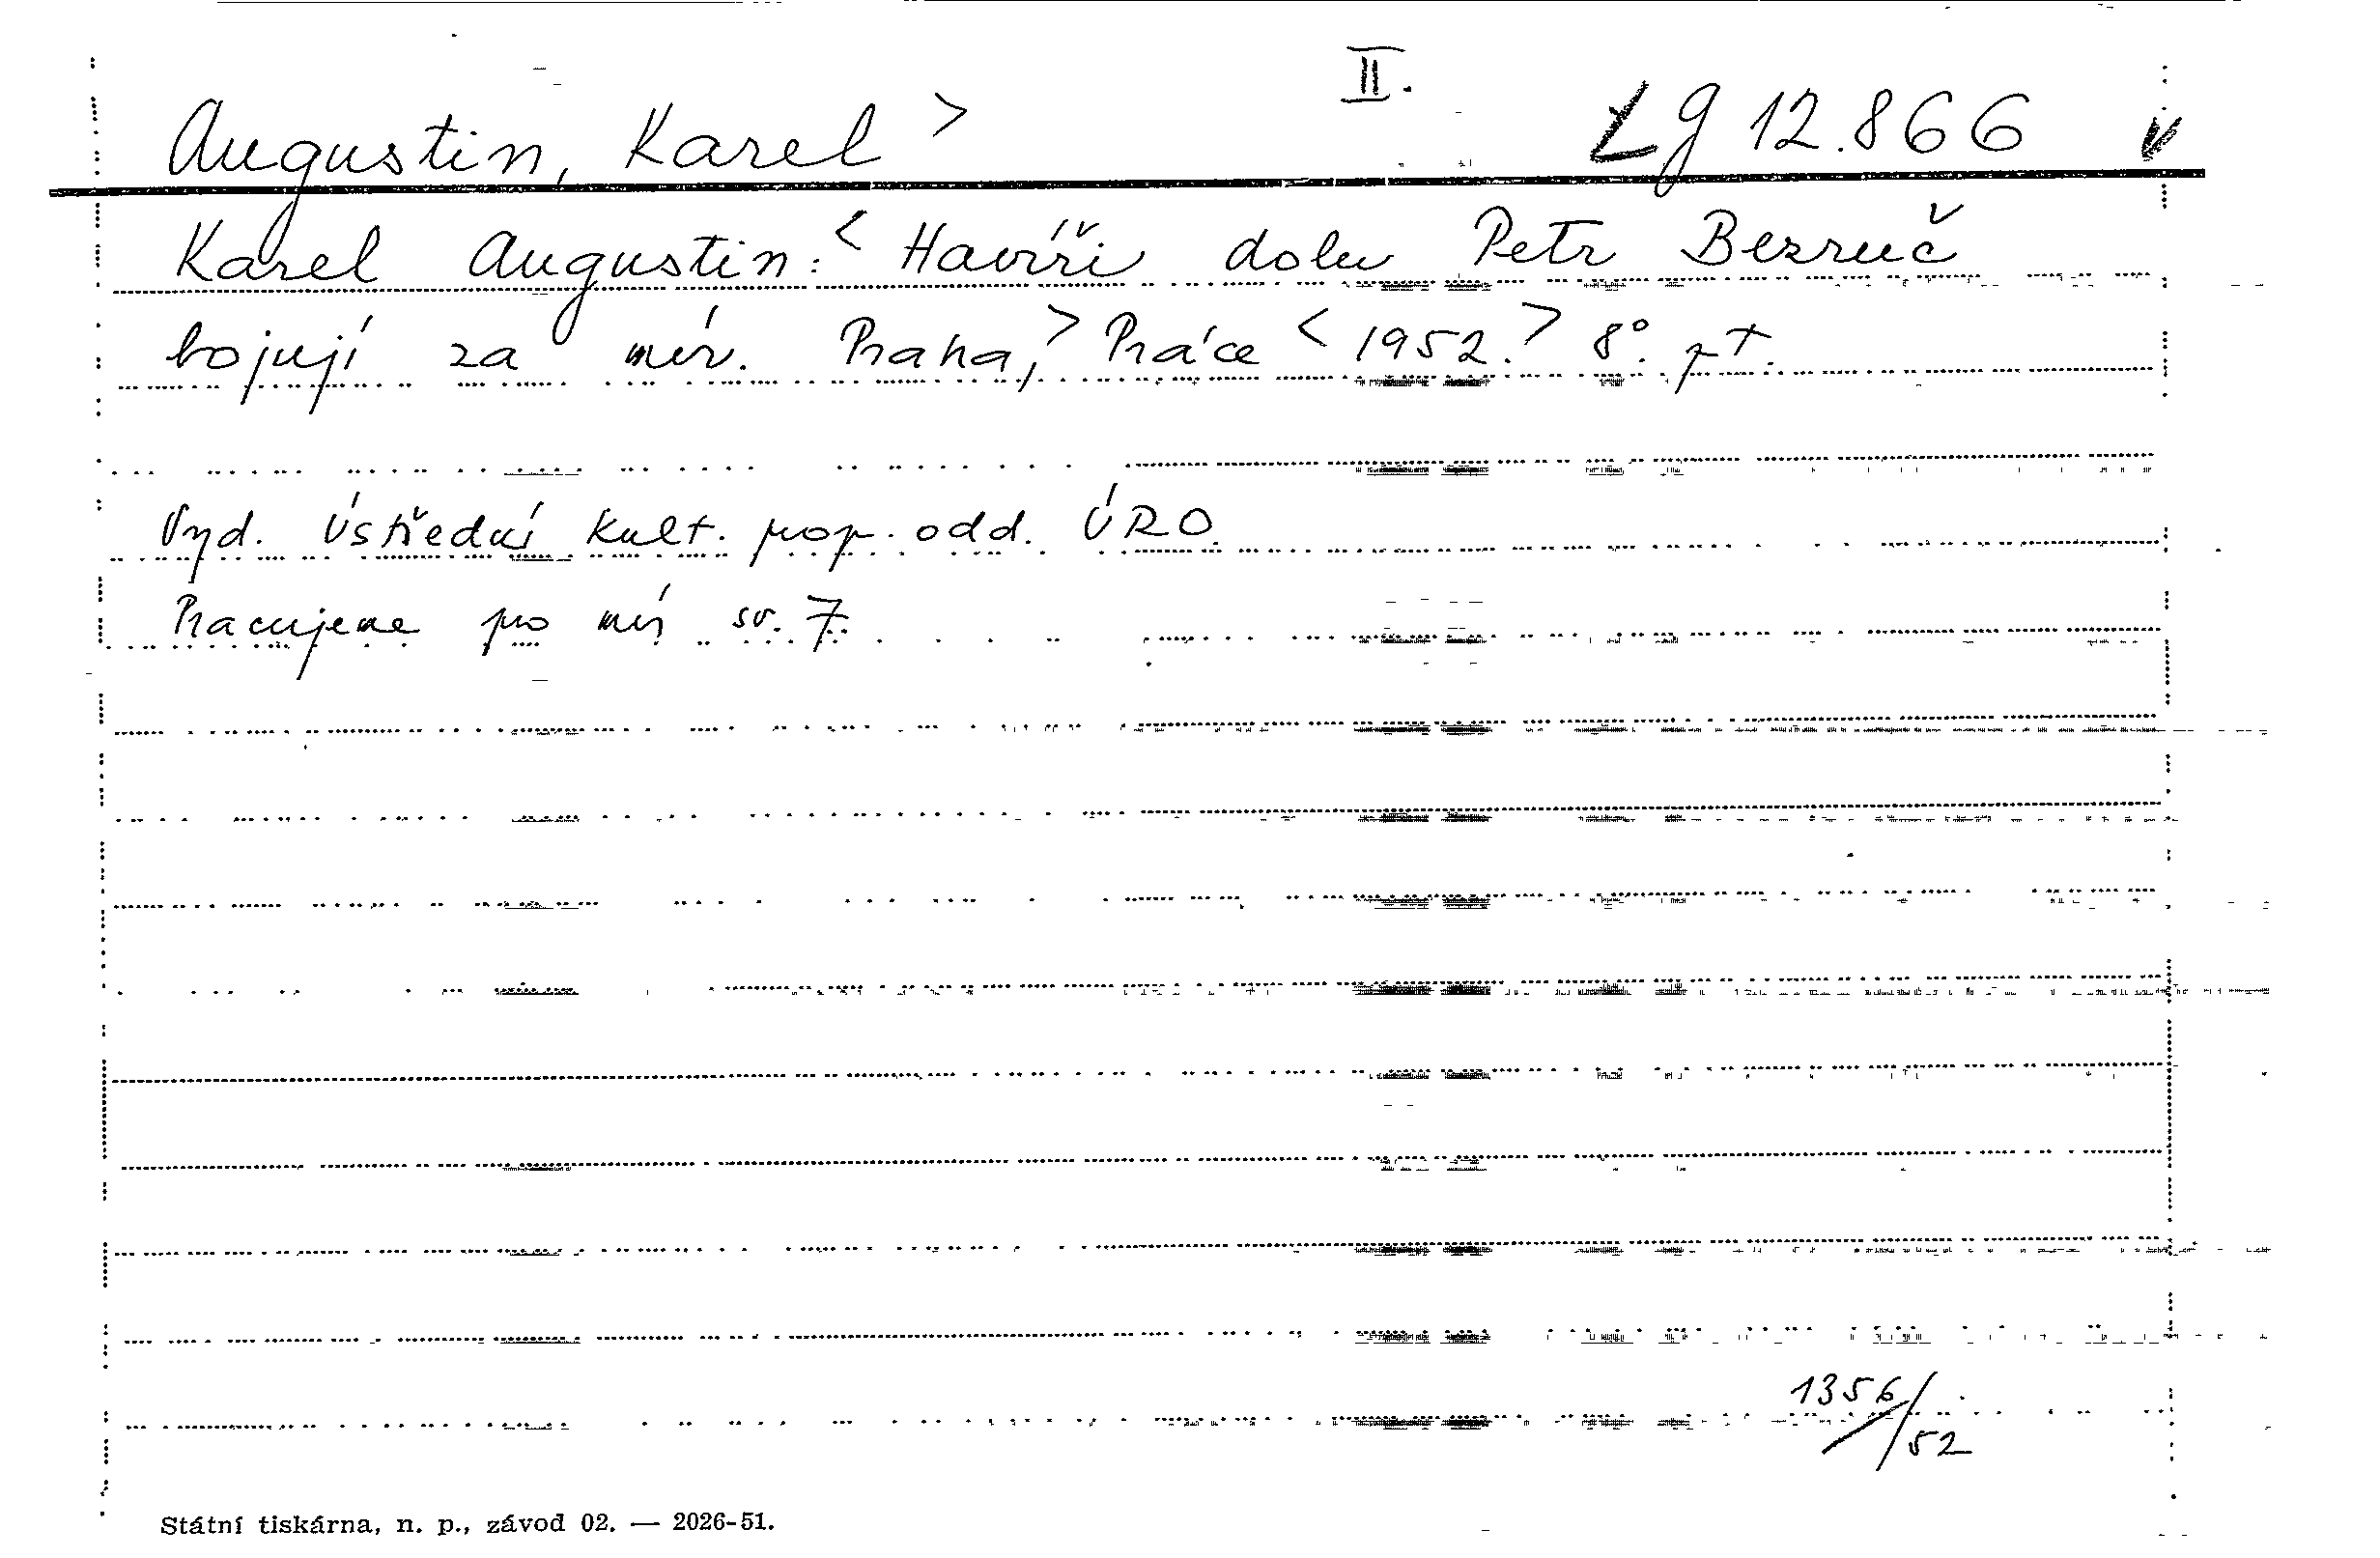 II.
Augustin, Karel > Lg 12.866
Karel Augustin: < Havíři dolu Petr Bezruč
bojují za mír. Praha, > Práce < 1952. > 8°. pt.
Vyd. Ústřední kult. prop. odd. ÚRO.
Pracujeme pro mír sv. 7.
1356/52
Státní tiskárna, n. p., závod 02. — 2026-51.